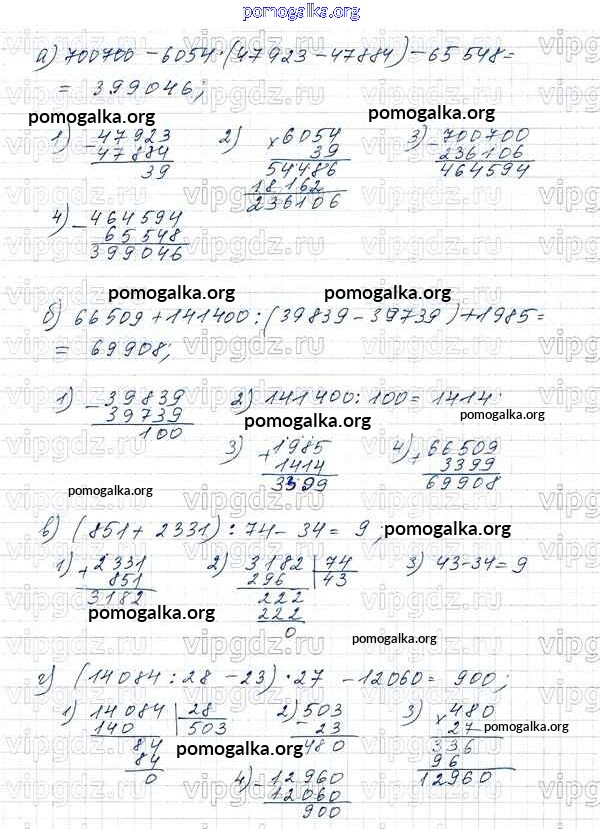 pomogalka.org
а) 700700 - 6054·(47923-47884) - 65548 =
= 399046;
pomogalka.org pomogalka.org
1) - 47923
47884
39
2) × 6054
39
54486
18 162
236106
3) - 700700
236106
464594
4) - 464594
65548
399046
pomogalka.org pomogalka.org
б) 66509 + 141400 : (39839 - 39739) + 1985 =
= 69908;
1) - 39839
39739
100
2) 141400 : 100 = 1414
pomogalka.org pomogalka.org
3) + 1985
1414
3399
4) + 66509
3399
69908
pomogalka.org
в) (851 + 2331) : 74 - 34 = 9; pomogalka.org
1) + 2331
851
3182
2) 3182 74
296 43
222
222
0
3) 43-34 = 9
pomogalka.org
pomogalka.org
г) (14084 : 28 - 23) · 27 - 12060 = 900;
1) 14084 28
140 503
84
84
0
2) - 503
23
480
3) × 480
27
336
96
12960
pomogalka.org
pomogalka.org
4) - 12960
12060
900
vipgdz.ru